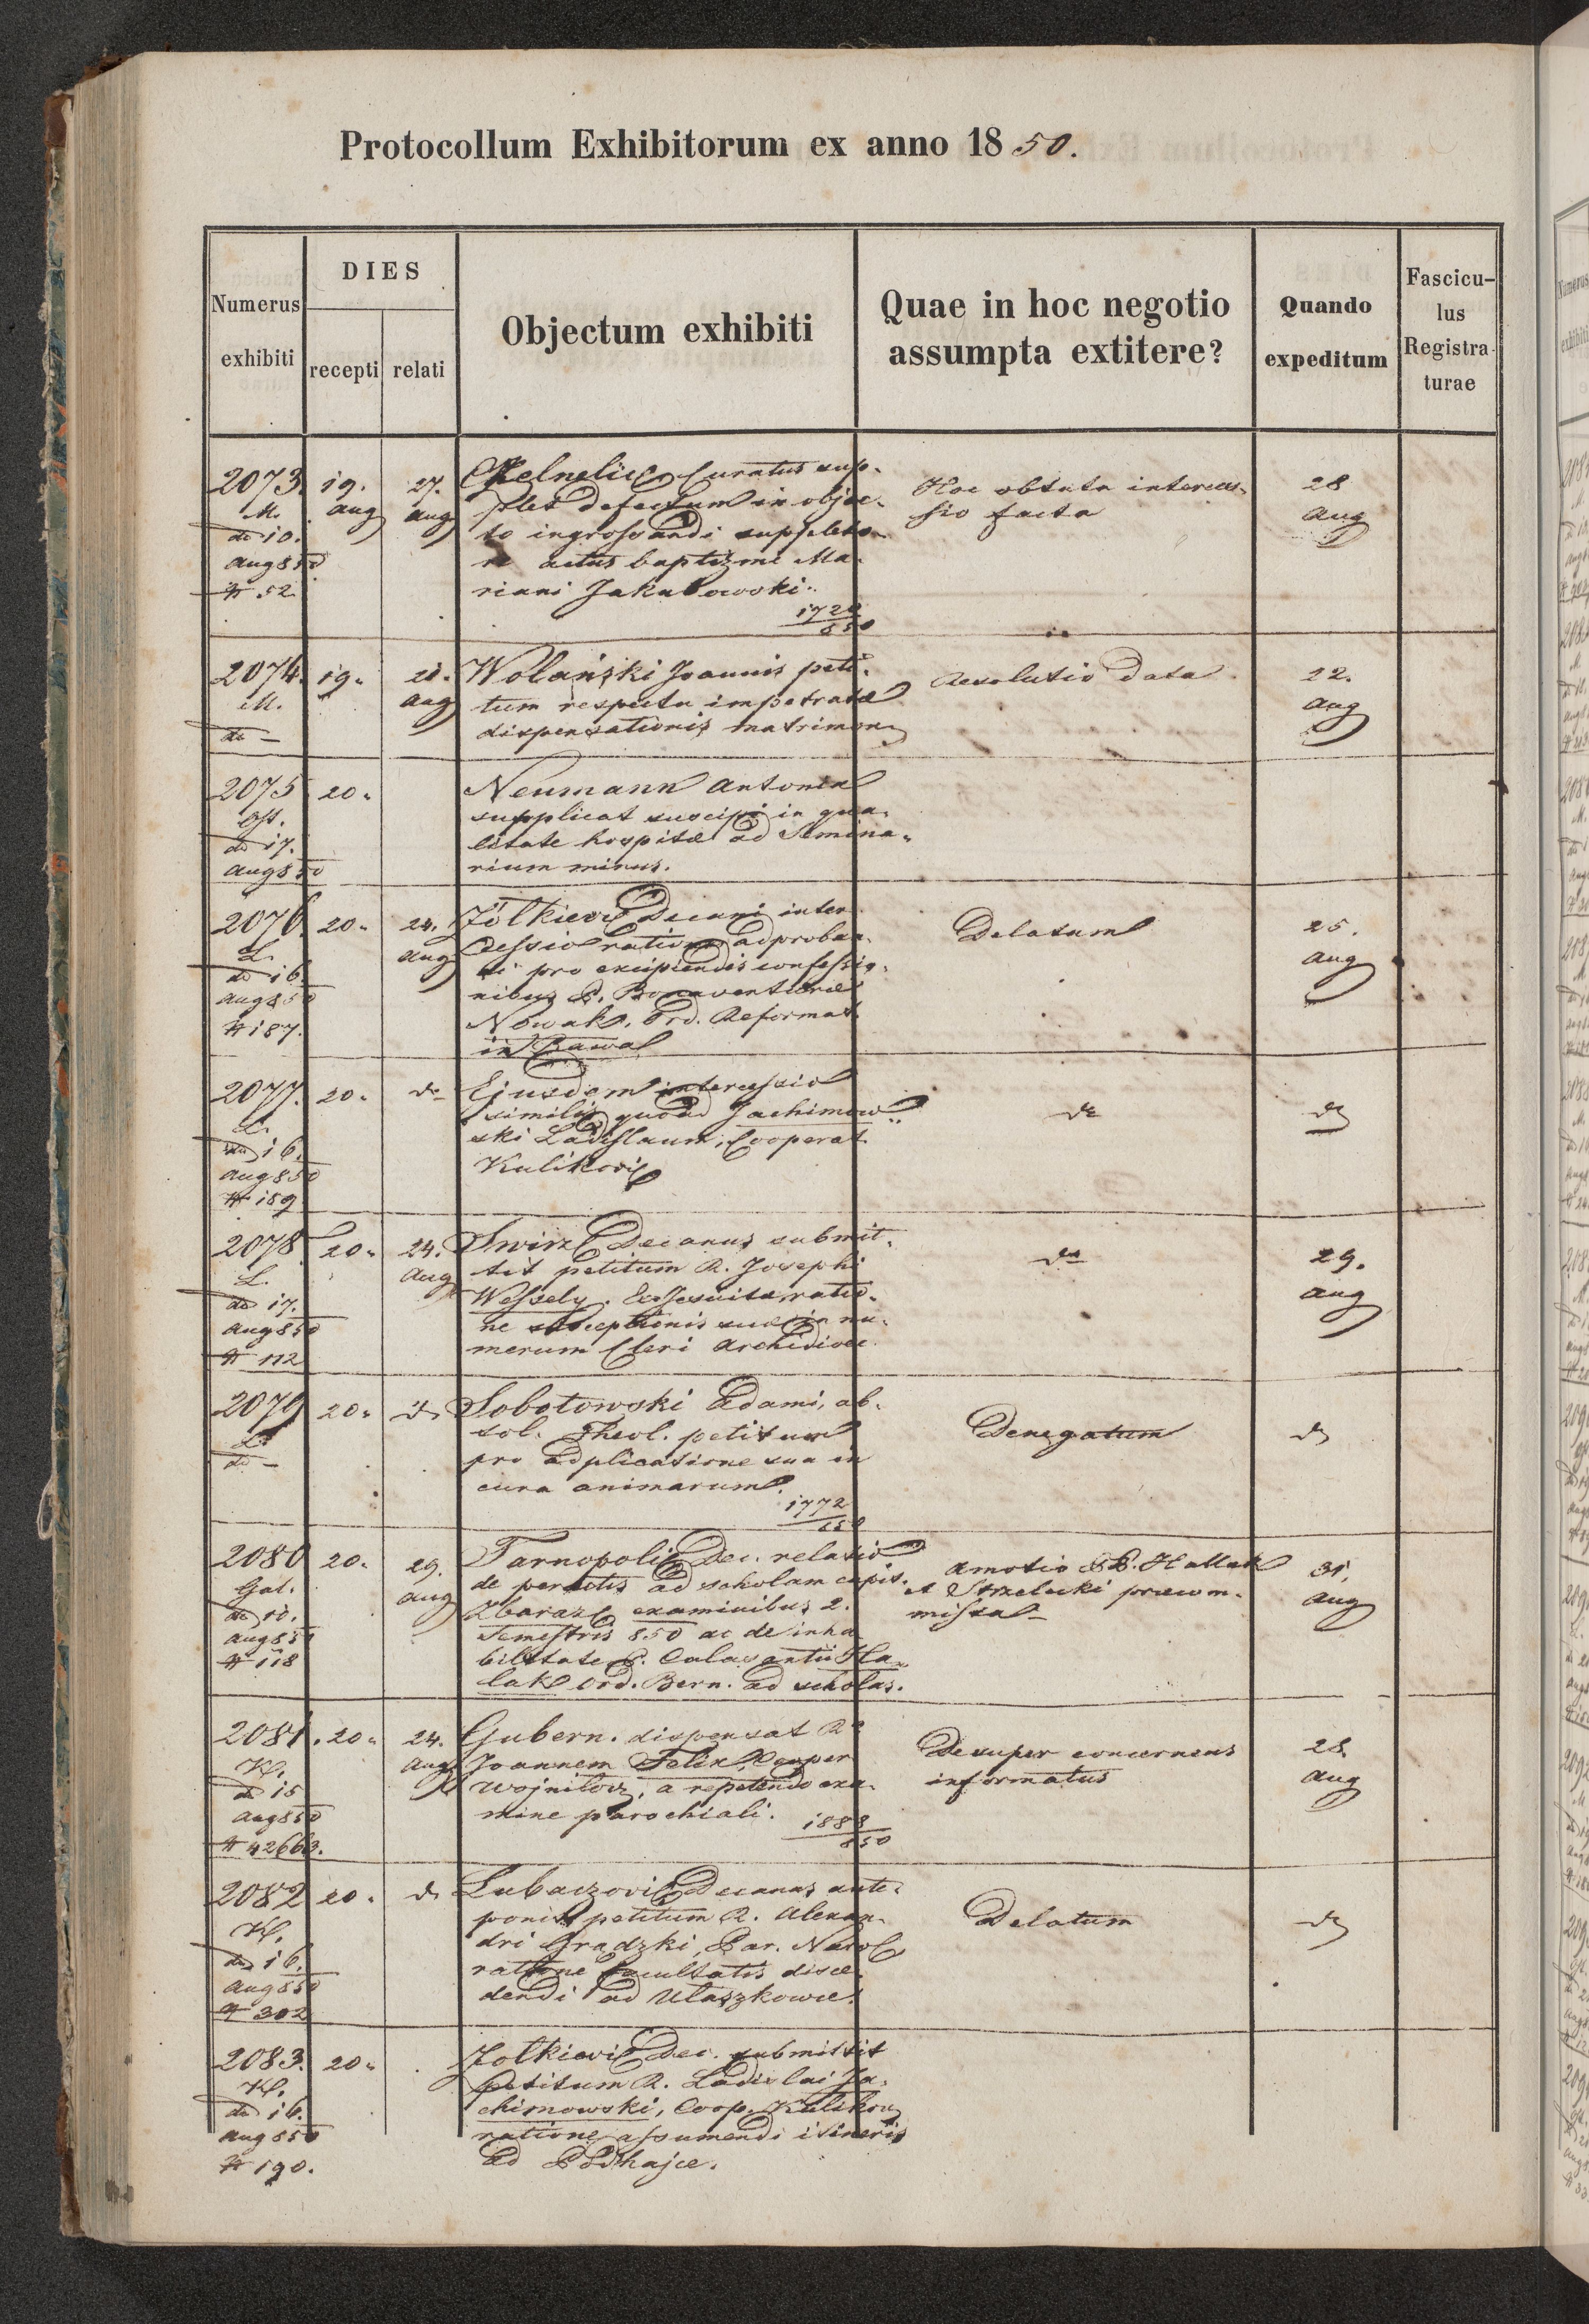 Protocollum Exhibitorum ex anno 1850.
Numerus exhibiti
DIES
recepti
relati
Objectum exhibiti
Quae in hoc negotio
assumpta extitere?
Quando
expeditum
Fascicu-
lus
Registra-
turae
2073.
M.
do 10.
aug 850
# 52
19.
aug
27.
aug
Curatus sup-
plet defectum in objec-
to ingrossandi
actus baptizmi Ma-
riani Jakubowski.
1720
850
Hoc obtuta interces-
sio facta
28
aug
2074.
M.
do -
19.
21.
aug
Wolański Joannis peti-
tum respectu impetratae
dispensationis matrimon
Resolutio data.
22.
aug
2075
do 17.
aug 850
20.
Neumann Antonia
supplicat suscipi in qua-
litate hospitae ad Semina-
rium minus.
2076.
L.
do 16.
aug 850
# 187.
20.
24.
aug
Zolkievi Decani inter
cessio ratione adproban-
di pro excipiendis confessio-
nibus P. Bonaventurae
Nowak, Ord. Reformat.
in Rawa
Delatum
25.
aug
2077.
L.
do 16.
aug 850
# 189
20.
do
Ejusdem intercessio
similis quoad Jachimow
ski Ladislaum, Cooperat.
Kulikovi
do
do
2078
L.
do 17.
aug 850
# 112
20.
24.
aug
Swirz Decanus submit-
tit petitum R. Josephi
Wessely. ExJesuitae ratio-
ne susceptionis suae in nu-
merum Cleri Archidioec.
do
29.
aug
2079
L.
do -
20.
do
Sobotowski Adami, ab-
sol. Theol. petitum
pro adplicatione sua in
cura animarum.
1772
850
Denegatum
do
2080
Gal.
do 10.
aug 850
# 118
20.
29.
aug
Tarnopoli Dec. relatio
de peractis ad scholam capit.
Zbaraz examinibus 2.
Semestris 850 ac de inha
bilitate P. Calasantii Ha-
lak Ord. Bern. ad scholas.
Amotio PP. Hallak
et Strzelecki
missa
31.
aug
2081.
do 15
aug 850
# 42663.
20.
24.
aug
Gubern. dispensat R.
Joannem Felix Cooper
Wojnilov, a repetendo exa-
mine parochiali.
1888
850
Desuper concernens
informatus
28.
aug
2082
do 16.
aug 850
# 302
20.
do
Lubaczovi Decanus ante-
ponit petitum R. Alexan-
dri Gradzki, Par. Narol
ratione facultatis disce-
dendi ad Ulaszkowce.
Delatum
do
2083.
do 16.
aug 850
# 190.
20.
Zolkievi Dec. submittit
petitum R. Ladislai Ja-
chimowski, Coop. Kulikov
ratione assumendi itineris
ad Podhajce.